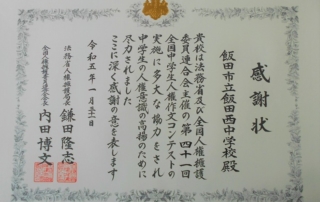 感謝状
飯田市立飯田西中学校殿
貴校は法務省及び全国人権擁護
委員連合会主催の第四十一回
全国中学生人権作文コンテストの
実施に多大な協力をされ
中学生の人権意識の高揚のために
尽力されました
ここに深く感謝の意を表します
令和五年一月三十一日
法務省人権擁護局長
鎌田隆志
全国人権擁護委員連合会長
内田博文